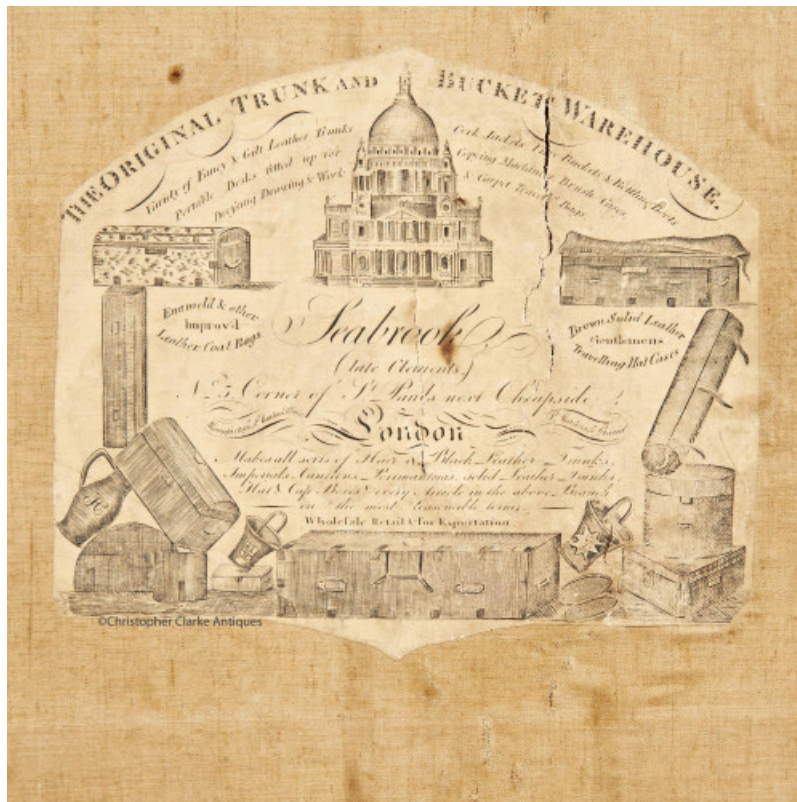 THE ORIGINAL TRUNK AND BUCKET WAREHOUSE.
Variety of Fancy & Gilt Leather Trunks
Portable Desks fitted up for
Dressing Drawing & Work
Cork Jackets Fire Buckets & Bottling Boots
Copying Machines Brush Cases
& Carpet Travelling Bags.
Enameld & other
Improv'd
Leather Coat Bags
Brown Solid Leather
Gentlemens
Travelling Hat Cases
Seabrook
(late Clements)
No. 5, Corner of St. Pauls next Cheapside,
London
Makes all sorts of Hair & Black Leather Trunks,
Imperials, Canteens, Portmanteaus, solid Leather Trunks,
Hat & Cap Boxes & every Article in the above Branch
on the most reasonable terms.
Wholesale Retail & for Exportation
©Christopher Clarke Antiques